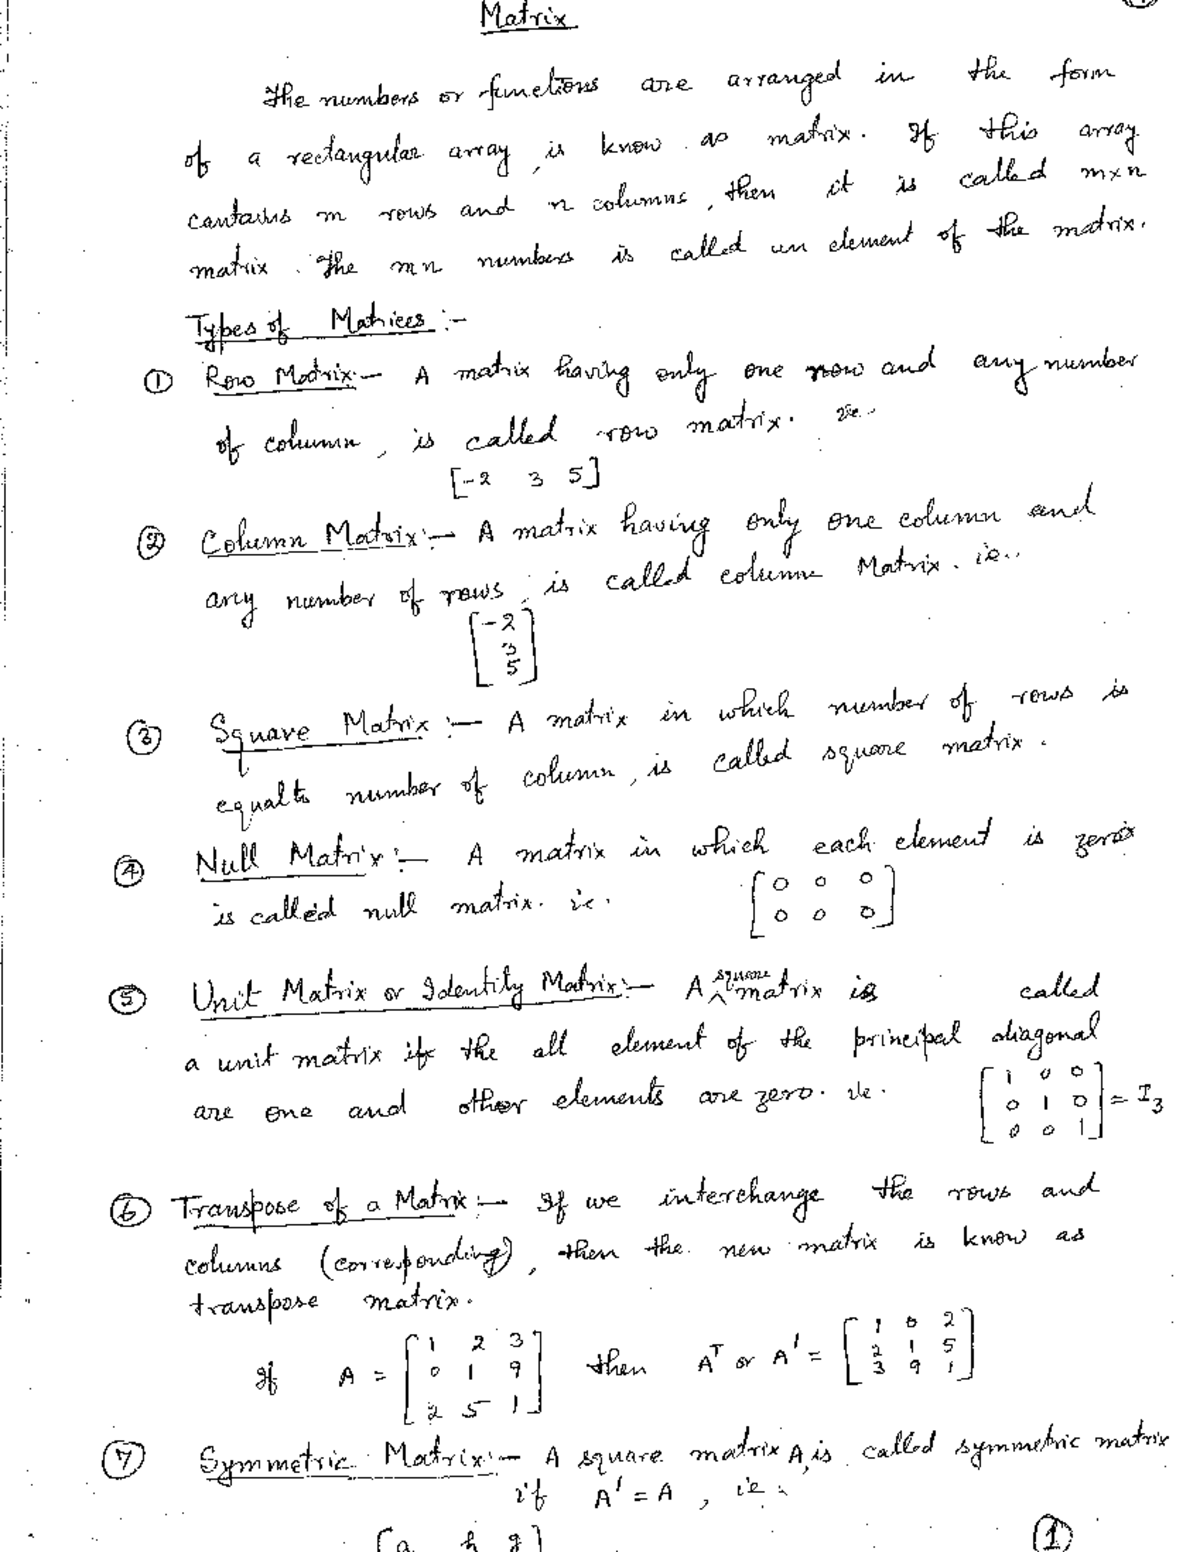 Matrix
The numbers or functions are arranged in the form
of a rectangular array, is know as matrix. If this array
contains m rows and n columns, then it is called m×n
matrix. The mn numbers is called an element of the matrix.
Types of Matrices :-
① Row Matrix:- A matrix having only one row and any number
of column, is called row matrix. ie..
[-2 3 5]
② Column Matrix:- A matrix having only one column and
any number of rows, is called column Matrix. ie..
[-2
3
5]
③ Square Matrix :- A matrix in which number of rows is
equal to number of column, is called square matrix.
④ Null Matrix:- A matrix in which each element is zero
is called null matrix. ie.
[0 0 0
0 0 0]
⑤ Unit Matrix or Identity Matrix:- A square matrix is called
a unit matrix if the all element of the principal diagonal
are one and other elements are zero. ie.
[1 0 0
0 1 0
0 0 1] = I₃
⑥ Transpose of a Matrix:- If we interchange the rows and
columns (corresponding), then the new matrix is know as
transpose matrix.
If A = [1 2 3
0 1 9
2 5 1] then Aᵀ or A' = [1 0 2
2 1 5
3 9 1]
⑦ Symmetric Matrix:- A square matrix A, is called symmetric matrix
if A' = A, ie.
[a h g]
①